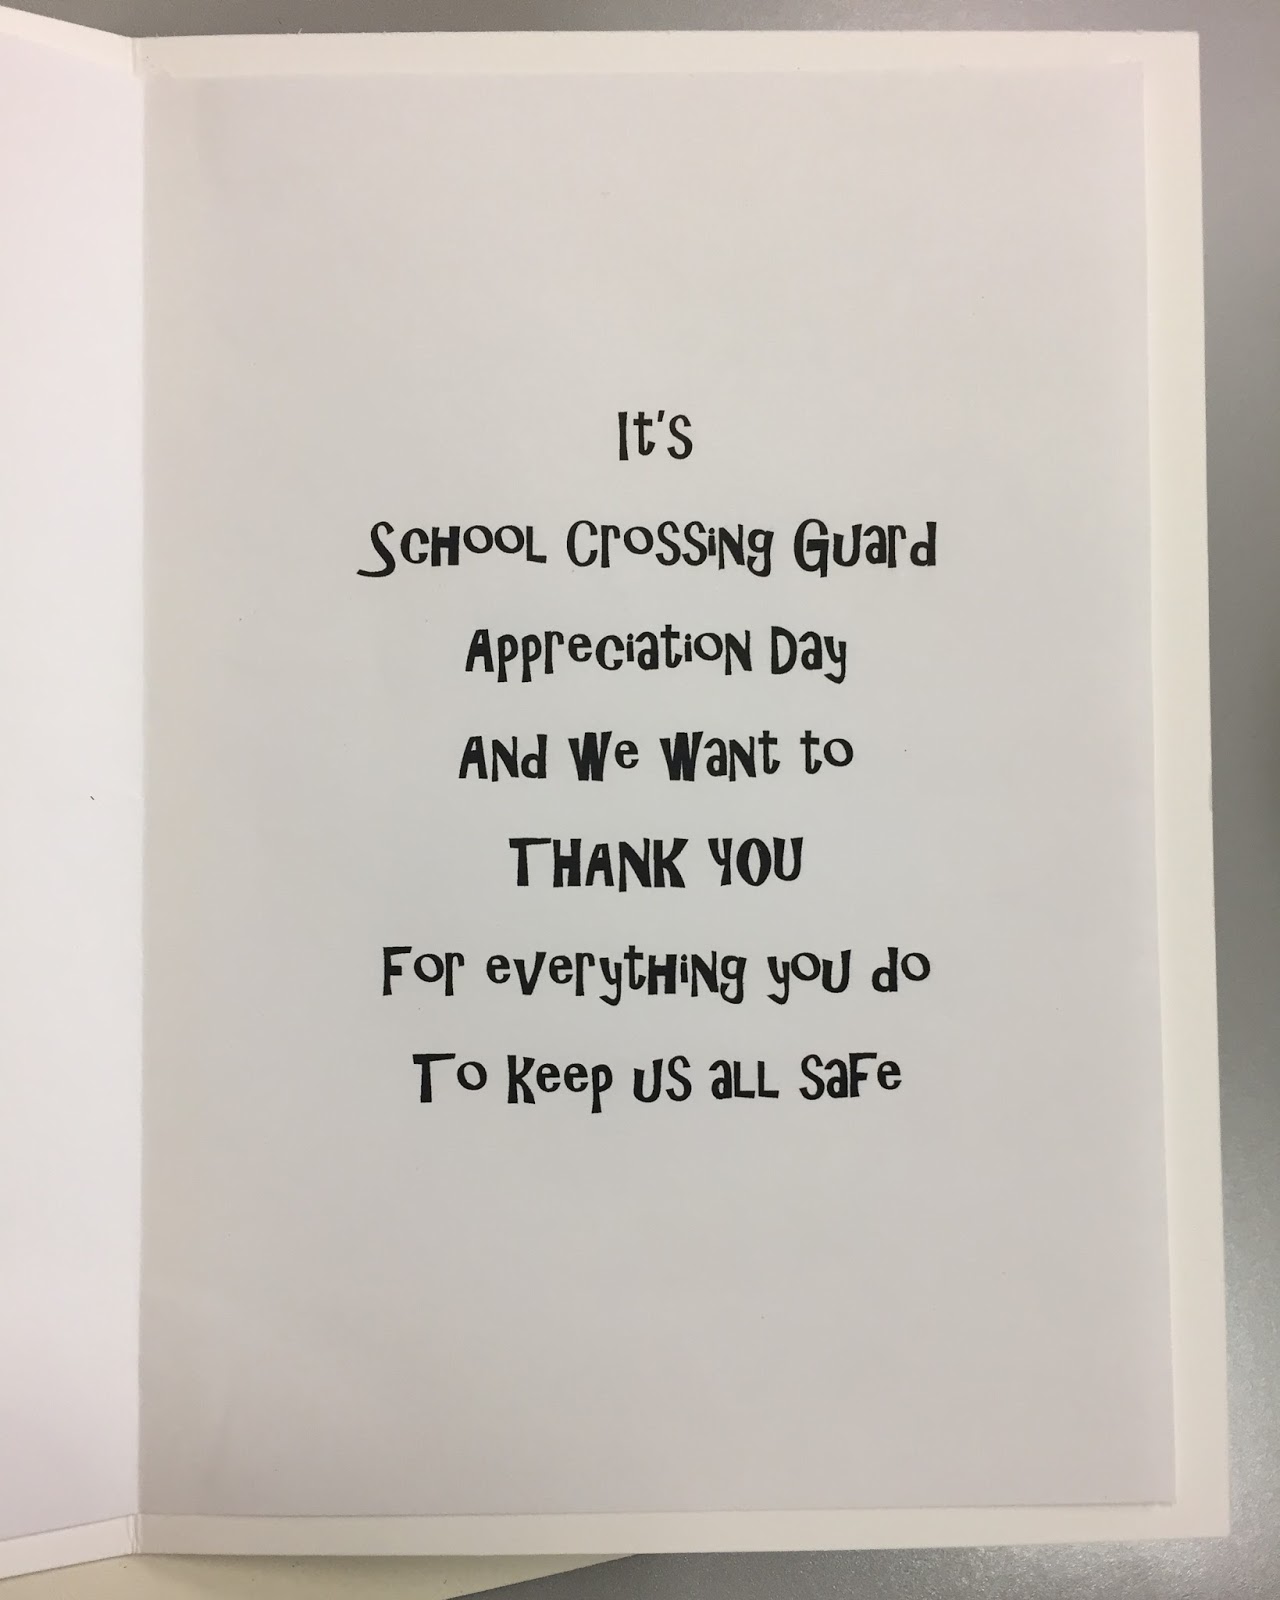 It's
School Crossing Guard
Appreciation Day
And We Want to
THANK YOU
For everything you do
To keep us all safe